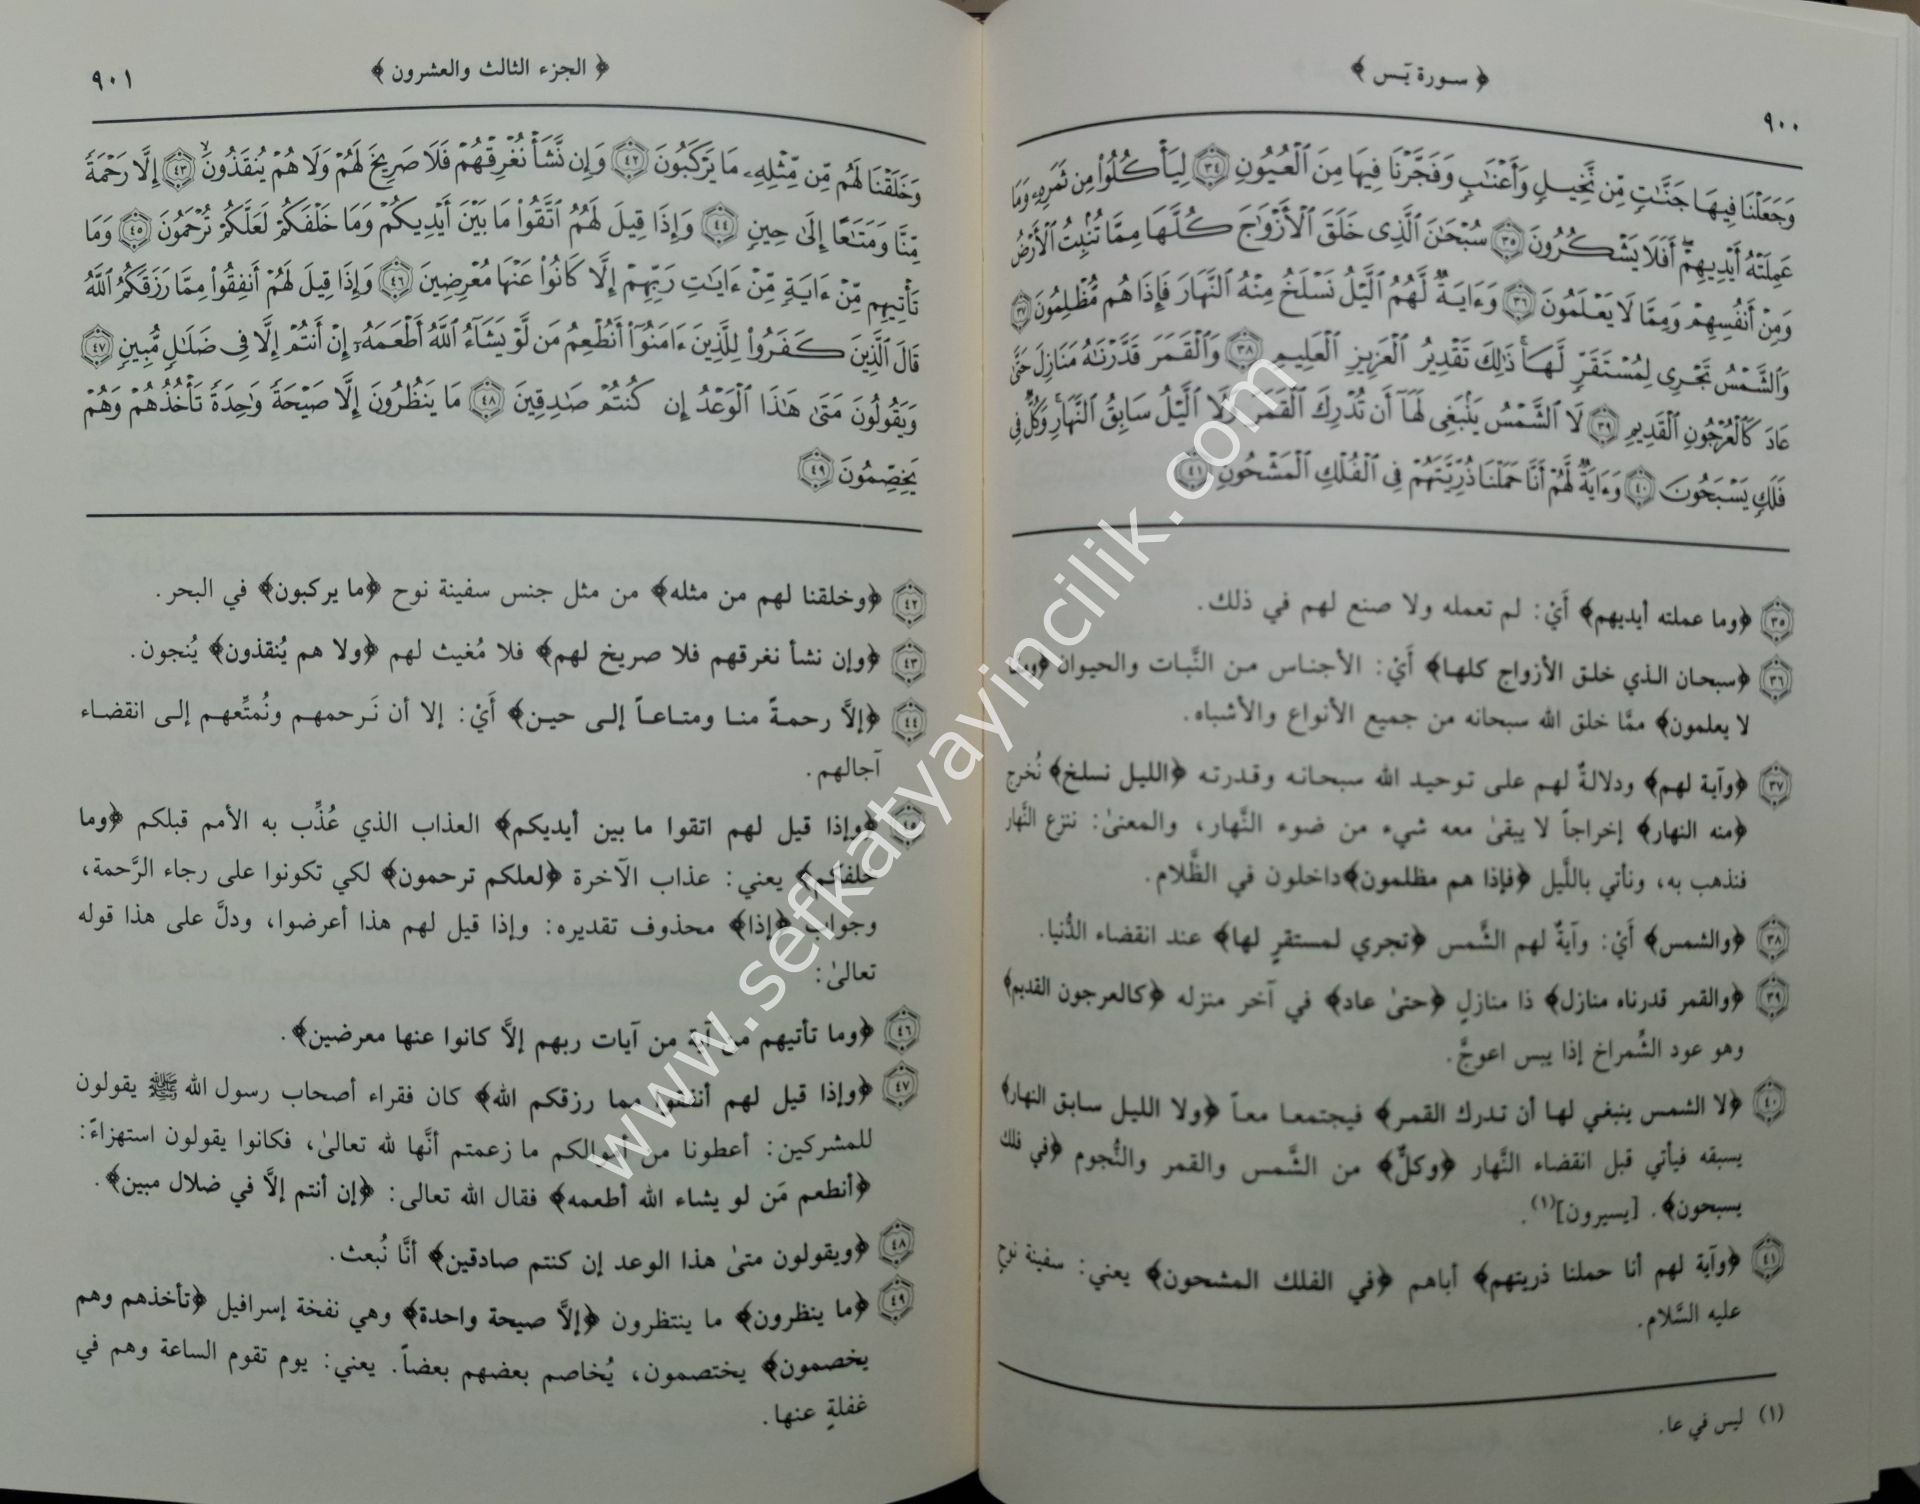 ﴿ سورة يٓس ﴾
٩٠٠
وَجَعَلْنَا فِيهَا جَنَّٰتٍ مِّن نَّخِيلٍ وَأَعْنَٰبٍ وَفَجَّرْنَا فِيهَا مِنَ ٱلْعُيُونِ ٣٤ لِيَأْكُلُوا۟ مِن ثَمَرِهِۦ وَمَا
عَمِلَتْهُ أَيْدِيهِمْ ۖ أَفَلَا يَشْكُرُونَ ٣٥ سُبْحَٰنَ ٱلَّذِى خَلَقَ ٱلْأَزْوَٰجَ كُلَّهَا مِمَّا تُنۢبِتُ ٱلْأَرْضُ
وَمِنْ أَنفُسِهِمْ وَمِمَّا لَا يَعْلَمُونَ ٣٦ وَءَايَةٌ لَّهُمُ ٱلَّيْلُ نَسْلَخُ مِنْهُ ٱلنَّهَارَ فَإِذَا هُم مُّظْلِمُونَ ٣٧
وَٱلشَّمْسُ تَجْرِى لِمُسْتَقَرٍّ لَّهَا ۚ ذَٰلِكَ تَقْدِيرُ ٱلْعَزِيزِ ٱلْعَلِيمِ ٣٨ وَٱلْقَمَرَ قَدَّرْنَٰهُ مَنَازِلَ حَتَّىٰ
عَادَ كَٱلْعُرْجُونِ ٱلْقَدِيمِ ٣٩ لَا ٱلشَّمْسُ يَنۢبَغِى لَهَآ أَن تُدْرِكَ ٱلْقَمَرَ وَلَا ٱلَّيْلُ سَابِقُ ٱلنَّهَارِ ۚ وَكُلٌّ فِى
فَلَكٍ يَسْبَحُونَ ٤٠ وَءَايَةٌ لَّهُمْ أَنَّا حَمَلْنَا ذُرِّيَّتَهُمْ فِى ٱلْفُلْكِ ٱلْمَشْحُونِ ٤١
٣٥ ﴿وما عملته أيديهم﴾ أَيْ: لم تعمله ولا صنع لهم في ذلك.
٣٦ ﴿سبحان الذي خلق الأزواج كلها﴾ أَيْ: الأجناس من النَّبات والحيوان ﴿ومما
لا يعلمون﴾ ممَّا خلق الله سبحانه من جميع الأنواع والأشباه.
٣٧ ﴿وآية لهم﴾ ودلالةٌ لهم على توحيد الله سبحانه وقدرته ﴿الليل نسلخ﴾ نُخرج
﴿منه النهار﴾ إخراجاً لا يبقىٰ معه شيء من ضوء النَّهار، والمعنىٰ: ننزع النَّهار
فنذهب به، ونأتي باللَّيل ﴿فإذا هم مظلمون﴾ داخلون في الظَّلام.
٣٨ ﴿والشمس﴾ أَيْ: وآيةٌ لهم الشَّمس ﴿تجري لمستقرٍ لها﴾ عند انقضاء الدُّنيا.
٣٩ ﴿والقمر قدرناه منازل﴾ ذا منازلٍ ﴿حتىٰ عاد﴾ في آخر منزله ﴿كالعرجون القديم﴾
وهو عود الشِّمراخ إذا يبس اعوجَّ.
٤٠ ﴿لا الشمس ينبغي لها أن تدرك القمر﴾ فيجتمعا معاً ﴿ولا الليل سابق النهار﴾
يسبقه فيأتي قبل انقضاء النَّهار ﴿وكلٌّ﴾ من الشَّمس والقمر والنُّجوم ﴿في فلك
يسبحون﴾. [يسيرون](١).
٤١ ﴿وآية لهم أنا حملنا ذريتهم﴾ أباهم ﴿في الفلك المشحون﴾ يعني: سفينة نوحٍ
عليه السَّلام.
(١) ليس في عا.
﴿ الجزء الثالث والعشرون ﴾
٩٠١
وَخَلَقْنَا لَهُم مِّن مِّثْلِهِۦ مَا يَرْكَبُونَ ٤٢ وَإِن نَّشَأْ نُغْرِقْهُمْ فَلَا صَرِيخَ لَهُمْ وَلَا هُمْ يُنقَذُونَ ٤٣ إِلَّا رَحْمَةً
مِّنَّا وَمَتَٰعًا إِلَىٰ حِينٍ ٤٤ وَإِذَا قِيلَ لَهُمُ ٱتَّقُوا۟ مَا بَيْنَ أَيْدِيكُمْ وَمَا خَلْفَكُمْ لَعَلَّكُمْ تُرْحَمُونَ ٤٥ وَمَا
تَأْتِيهِم مِّنْ ءَايَةٍ مِّنْ ءَايَٰتِ رَبِّهِمْ إِلَّا كَانُوا۟ عَنْهَا مُعْرِضِينَ ٤٦ وَإِذَا قِيلَ لَهُمْ أَنفِقُوا۟ مِمَّا رَزَقَكُمُ ٱللَّهُ
قَالَ ٱلَّذِينَ كَفَرُوا۟ لِلَّذِينَ ءَامَنُوٓا۟ أَنُطْعِمُ مَن لَّوْ يَشَآءُ ٱللَّهُ أَطْعَمَهُۥٓ إِنْ أَنتُمْ إِلَّا فِى ضَلَٰلٍ مُّبِينٍ ٤٧
وَيَقُولُونَ مَتَىٰ هَٰذَا ٱلْوَعْدُ إِن كُنتُمْ صَٰدِقِينَ ٤٨ مَا يَنظُرُونَ إِلَّا صَيْحَةً وَٰحِدَةً تَأْخُذُهُمْ وَهُمْ
يَخِصِّمُونَ ٤٩
٤٢ ﴿وخلقنا لهم من مثله﴾ من مثل جنس سفينة نوح ﴿ما يركبون﴾ في البحر.
٤٣ ﴿وإن نشأ نغرقهم فلا صريخ لهم﴾ فلا مُغيث لهم ﴿ولا هم يُنقذون﴾ يُنجون.
٤٤ ﴿إلاَّ رحمةً منا ومتاعاً إلى حين﴾ أَيْ: إلا أن نَرحمهم ونُمتِّعهم إلى انقضاء
آجالهم.
٤٥ ﴿وإذا قيل لهم اتقوا ما بين أيديكم﴾ العذاب الذي عُذِّب به الأمم قبلكم ﴿وما
خلفكم﴾ يعني: عذاب الآخرة ﴿لعلكم ترحمون﴾ لكي تكونوا على رجاء الرَّحمة،
وجواب ﴿إذا﴾ محذوف تقديره: وإذا قيل لهم هذا أعرضوا، ودلَّ على هذا قوله
تعالىٰ:
٤٦ ﴿وما تأتيهم من آية من آيات ربهم إلاَّ كانوا عنها معرضين﴾.
٤٧ ﴿وإذا قيل لهم أنفقوا مما رزقكم الله﴾ كان فقراء أصحاب رسول الله ﷺ يقولون
للمشركين: أعطونا من أموالكم ما زعمتم أنَّها لله تعالىٰ، فكانوا يقولون استهزاءً:
﴿أنطعم مَن لو يشاء الله أطعمه﴾ فقال الله تعالى: ﴿إن أنتم إلاَّ في ضلال مبين﴾.
٤٨ ﴿ويقولون متىٰ هذا الوعد إن كنتم صادقين﴾ أنَّا نُبعث.
٤٩ ﴿ما ينظرون﴾ ما ينتظرون ﴿إلاَّ صيحة واحدة﴾ وهي نفخة إسرافيل ﴿تأخذهم وهم
يخصمون﴾ يختصمون، يُخاصم بعضهم بعضاً. يعني: يوم تقوم الساعة وهم في
غفلةٍ عنها.
www.sefkatyayincilik.com